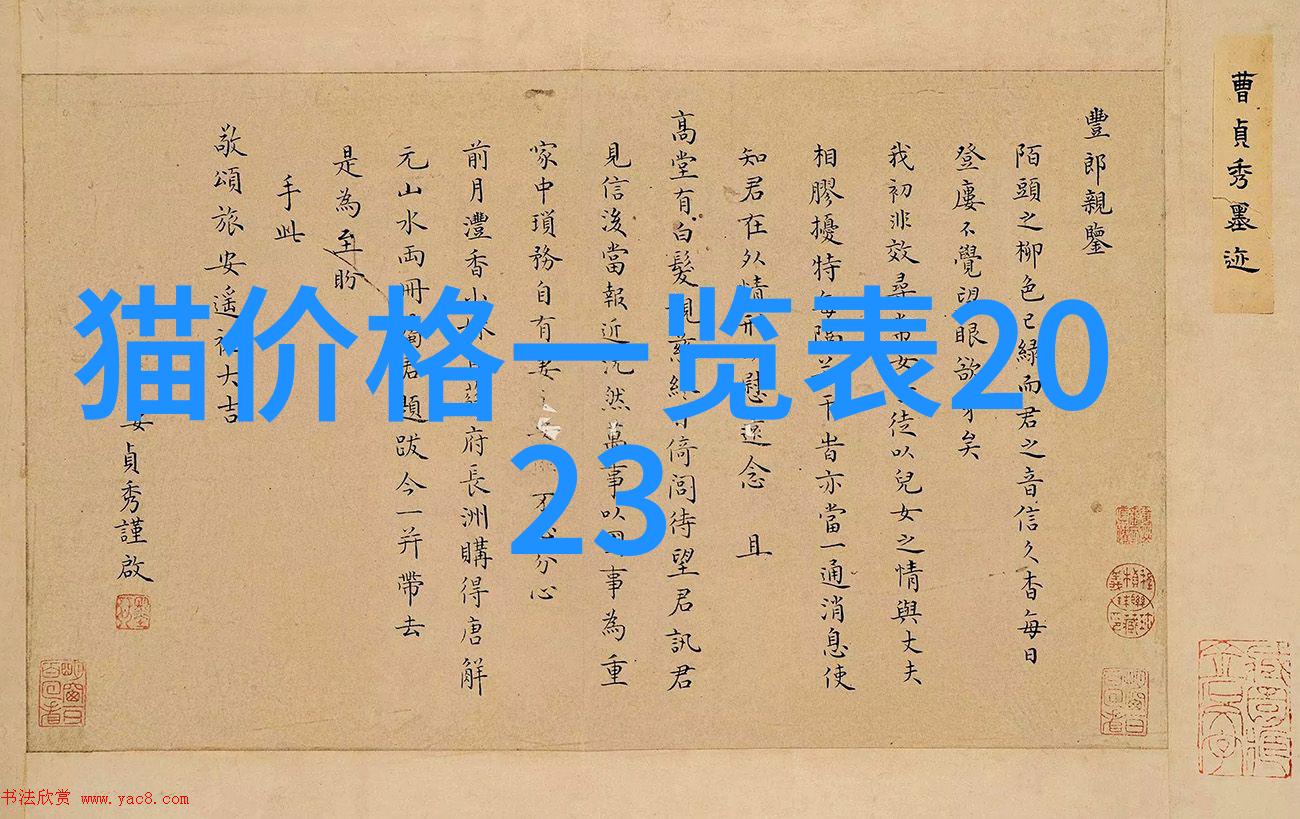 猫价格一览表20
23
曹貞秀墨迹
豐郎親鑒
陌頭之柳色已綠而君之音信久杳每日
登廔不覺望眼欲穿矣
我初非效尋常女之徒以兒女之情與丈夫
相膠擾特每隔若干旹亦當一通消息使
知君在外情形慰遠念 且
高堂有白髮親慈倚閭待望君訊君
見信後當報近況然萬事以國事為重
家中瑣務自有妻不必分心
前月灃香小府長洲購得唐解
元山水兩冊屬君題跋今一并帶去
是為至盼
手此
敬頌旅安遙祝大吉
貞秀謹啟
书法欣赏 www.yac8.com